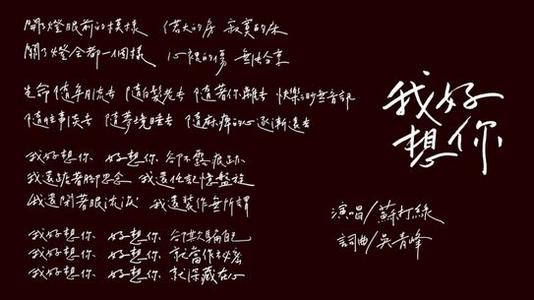 開了燈眼前的模樣 偌大的房 寂寞的床
關了燈全都一個樣 心裡的傷 無法分享
生命隨年月流去 隨白髮老去 隨著你離去 快樂渺無音訊
隨往事淡去 隨夢境睡去 隨麻痺的心逐漸遠去
我好想你 好想你 卻不露痕跡
我還踮著腳思念 我還任記憶盤旋
我還閉著眼流淚 我還裝作無所謂
我好想你 好想你 卻欺騙自己
我好想你 好想你 就當作秘密
我好想你 好想你 就深藏在心
我好
想你
演唱/蘇打綠
詞曲/吳青峰